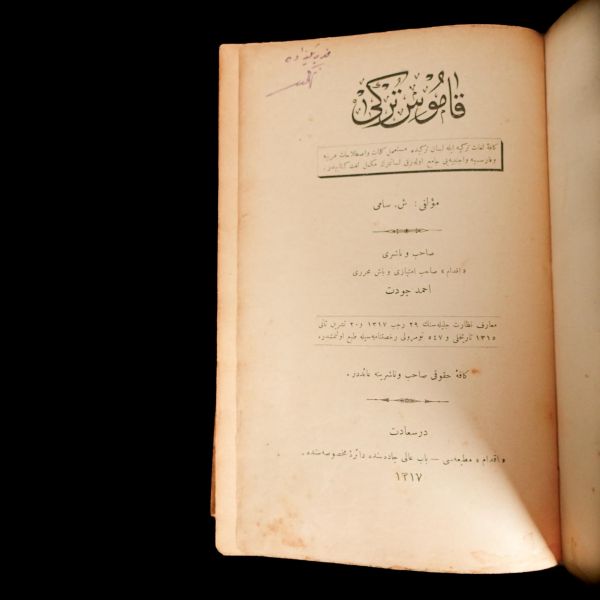 قاموس تركی
كافهٔ لغات تركیه ایله لسان تركیده مستعمل كلمات و اصطلاحات عربیه
و فارسیه و اجنبیه‌یی جامع اولەرق لسانمزك مكمل لغت كتابیدر.
مؤلفی: ش. سامی
صاحب و ناشری
«اقدام» صاحب امتیازی و باش محرری
احمد جودت
معارف نظارت جلیله‌سنك ٢٩ رجب ١٣١٧ و ٢٠ تشرین ثانی
١٣١٥ تاریخلی و ٥٤٧ نومرولی رخصتنامه‌سیله طبع اولنمشدر.
كافهٔ حقوقی صاحب و ناشرینه عائددر.
درسعادت
«اقدام» مطبعه‌سی — باب عالی جاده‌سنده دائرهٔ مخصوصه‌سنده.
١٣١٧